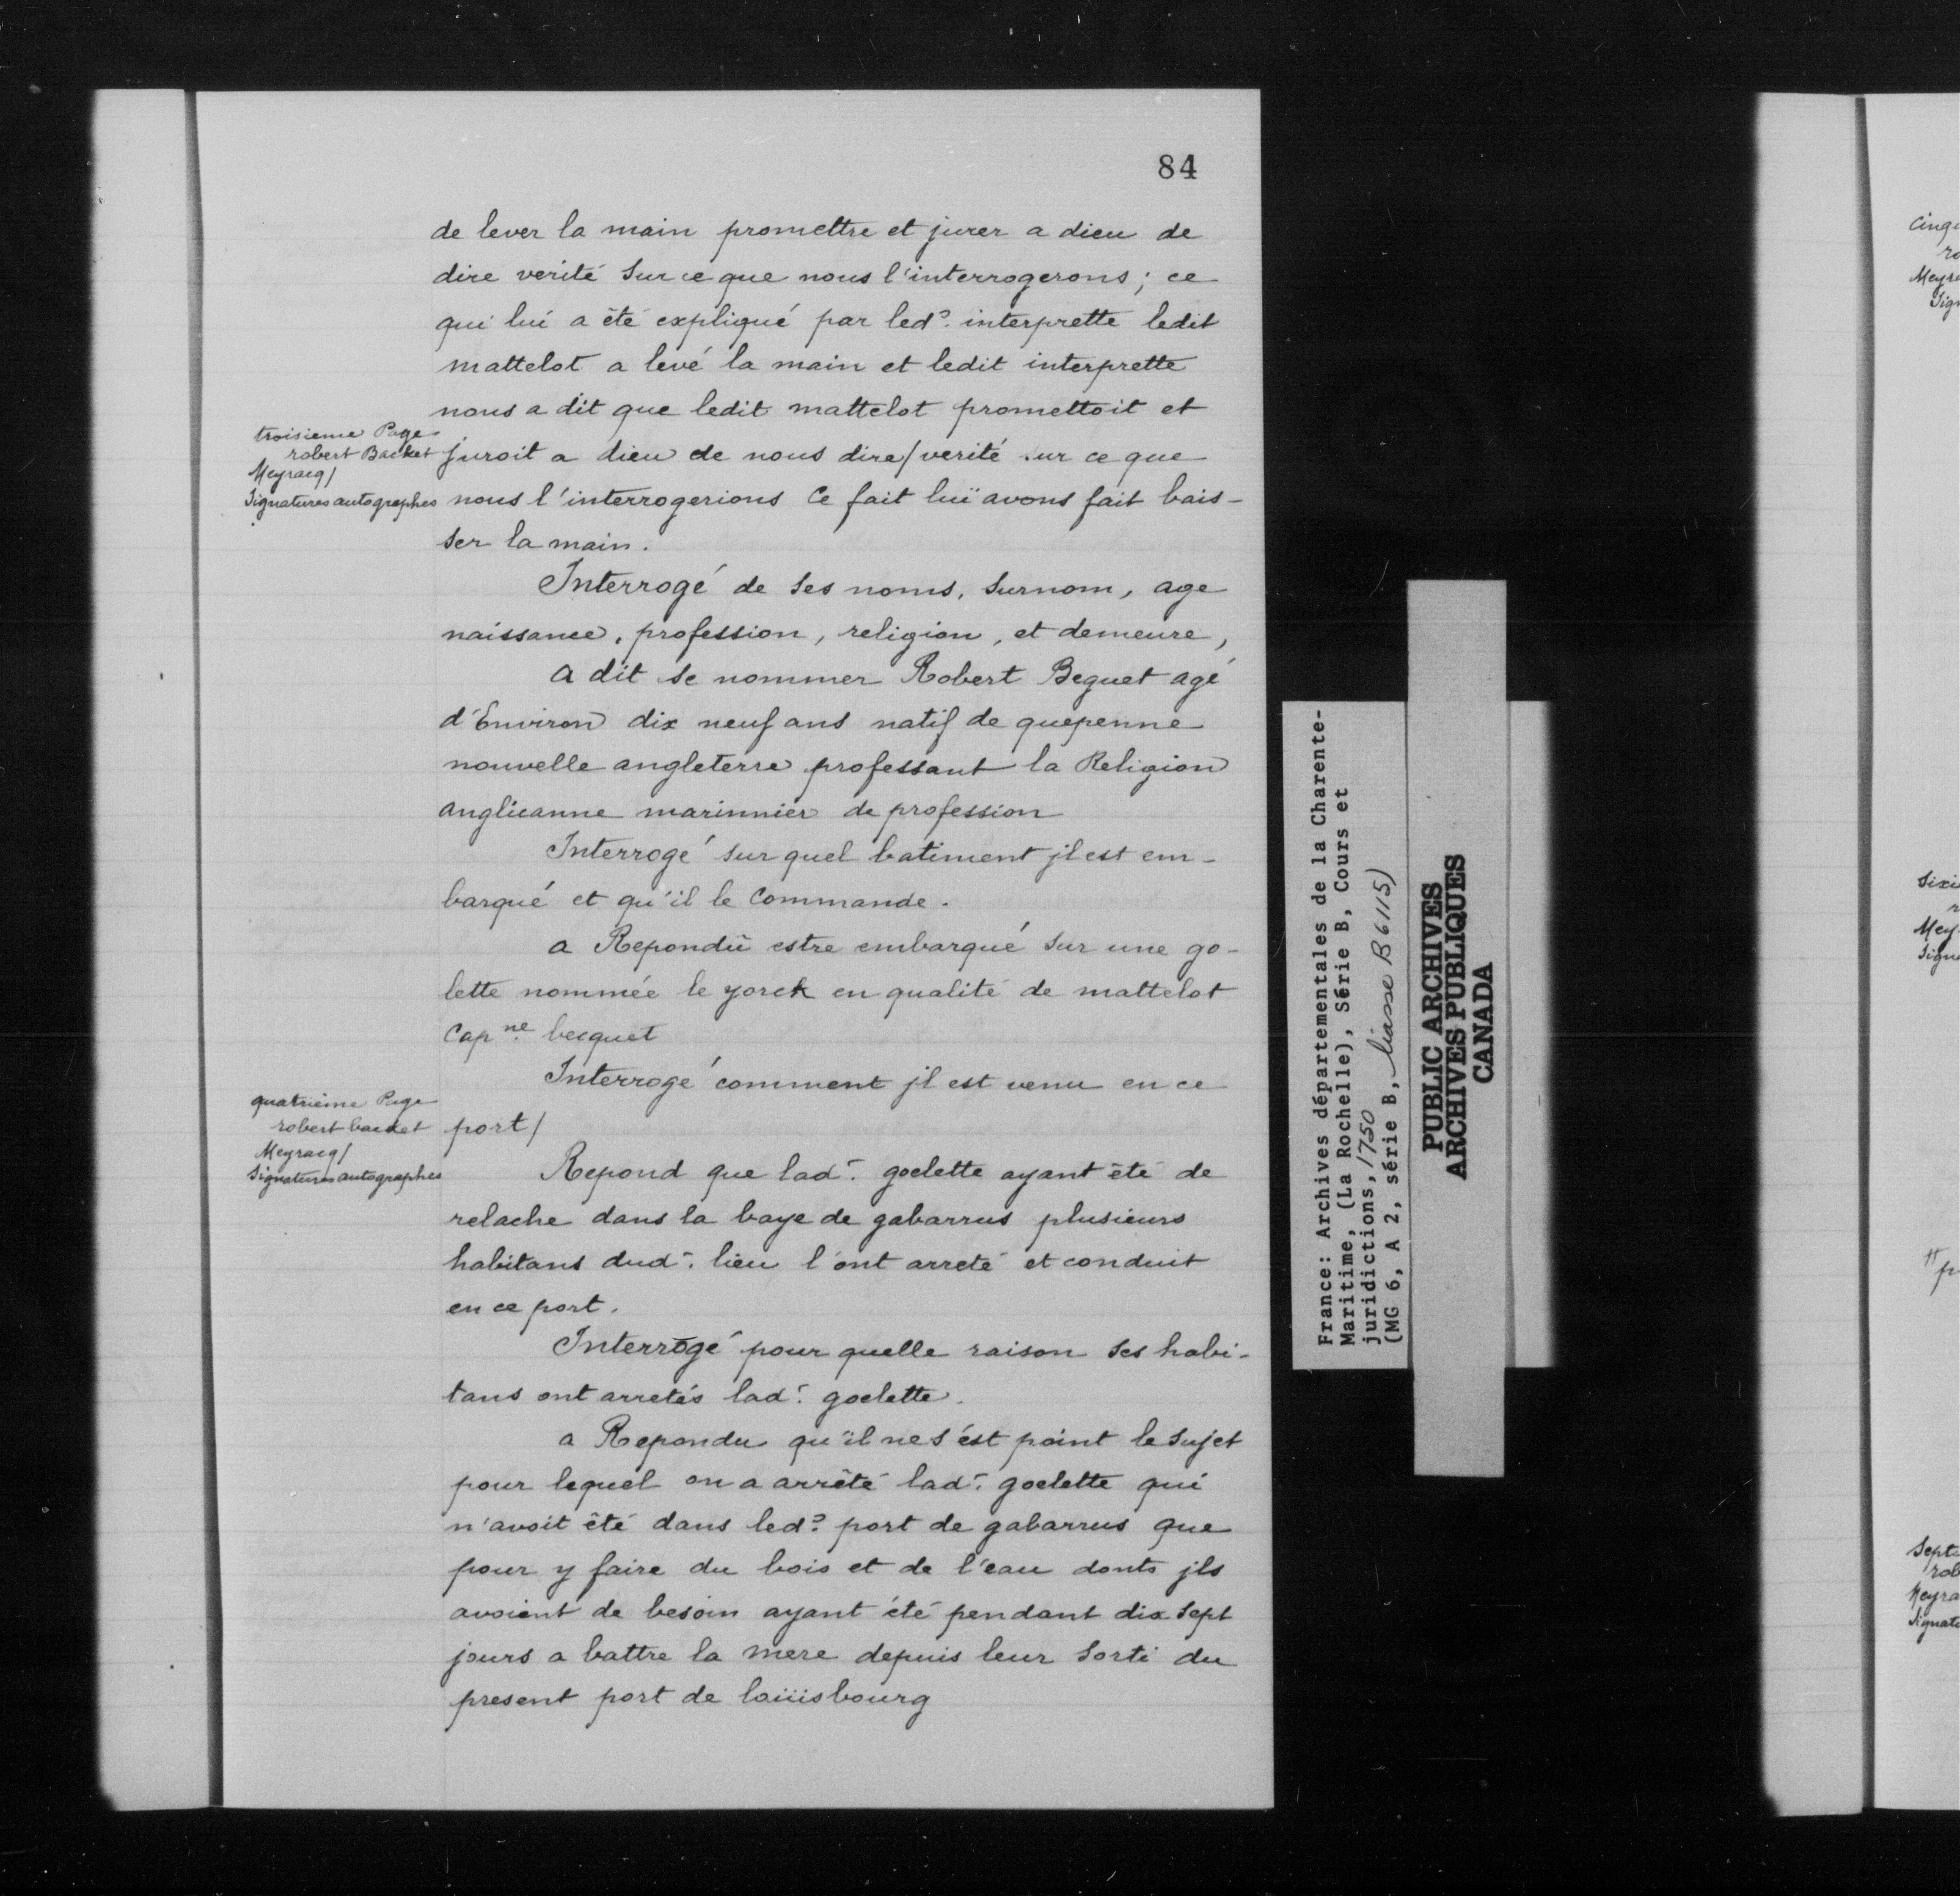 84
de lever la main promettre et jurer a dieu de
dire verité sur ce que nous l'interrogerons; ce
qui lui a été expliqué par led? interprette ledit
mattelot a levé la main et ledit interprette
nous a dit que ledit mattelot promettoit et
troisieme Page
robert Backet
Meyracq/
Signatures autographes
juroit a dieu de nous dire/verité sur ce que
nous l'interrogerions Ce fait luï avons fait bais-
ser la main.
Interrogé de ses noms, surnom, age
naissance, profession, religion, et demeure,
a dit se nommer Robert Bequet agé
d'Environ dix neuf ans natif de quepenne
nouvelle angleterre professant la Religion
anglicanne marinnier de profession
Interrogé sur quel batiment jl est em-
barqué et qu'il le Commande.
a Repondü estre embarqué sur une go-
lette nommée le yorck en qualité de mattelot
Cap.ne becquet
Interrogé comment jl est venu en ce
quatrieme Page
robert backet
Meyracq/
Signatures autographes
port/
Repond que lad. goelette ayant été de
relache dans la baye de gabarrus plusieurs
habitans dud. lieu l'ont arreté et conduit
en ce port.
Interrogé pour quelle raison ses habi-
tans ont arretés lad. goelette.
a Repondu qu'il ne s'est point le sujet
pour lequel on a arrêté lad. goelette qui
n'avoit été dans led? port de gabarrus que
pour y faire du bois et de l'eau donts jls
avoient de besoin ayant été pendant dix sept
jours a battre la mere depuis leur sorti du
present port de loüisbourg
France: Archives départementales de la Charente-
Maritime, (La Rochelle), Série B, Cours et
juridictions, 1750
(MG 6, A 2, série B, liasse B 6115)
PUBLIC ARCHIVES
ARCHIVES PUBLIQUES
CANADA